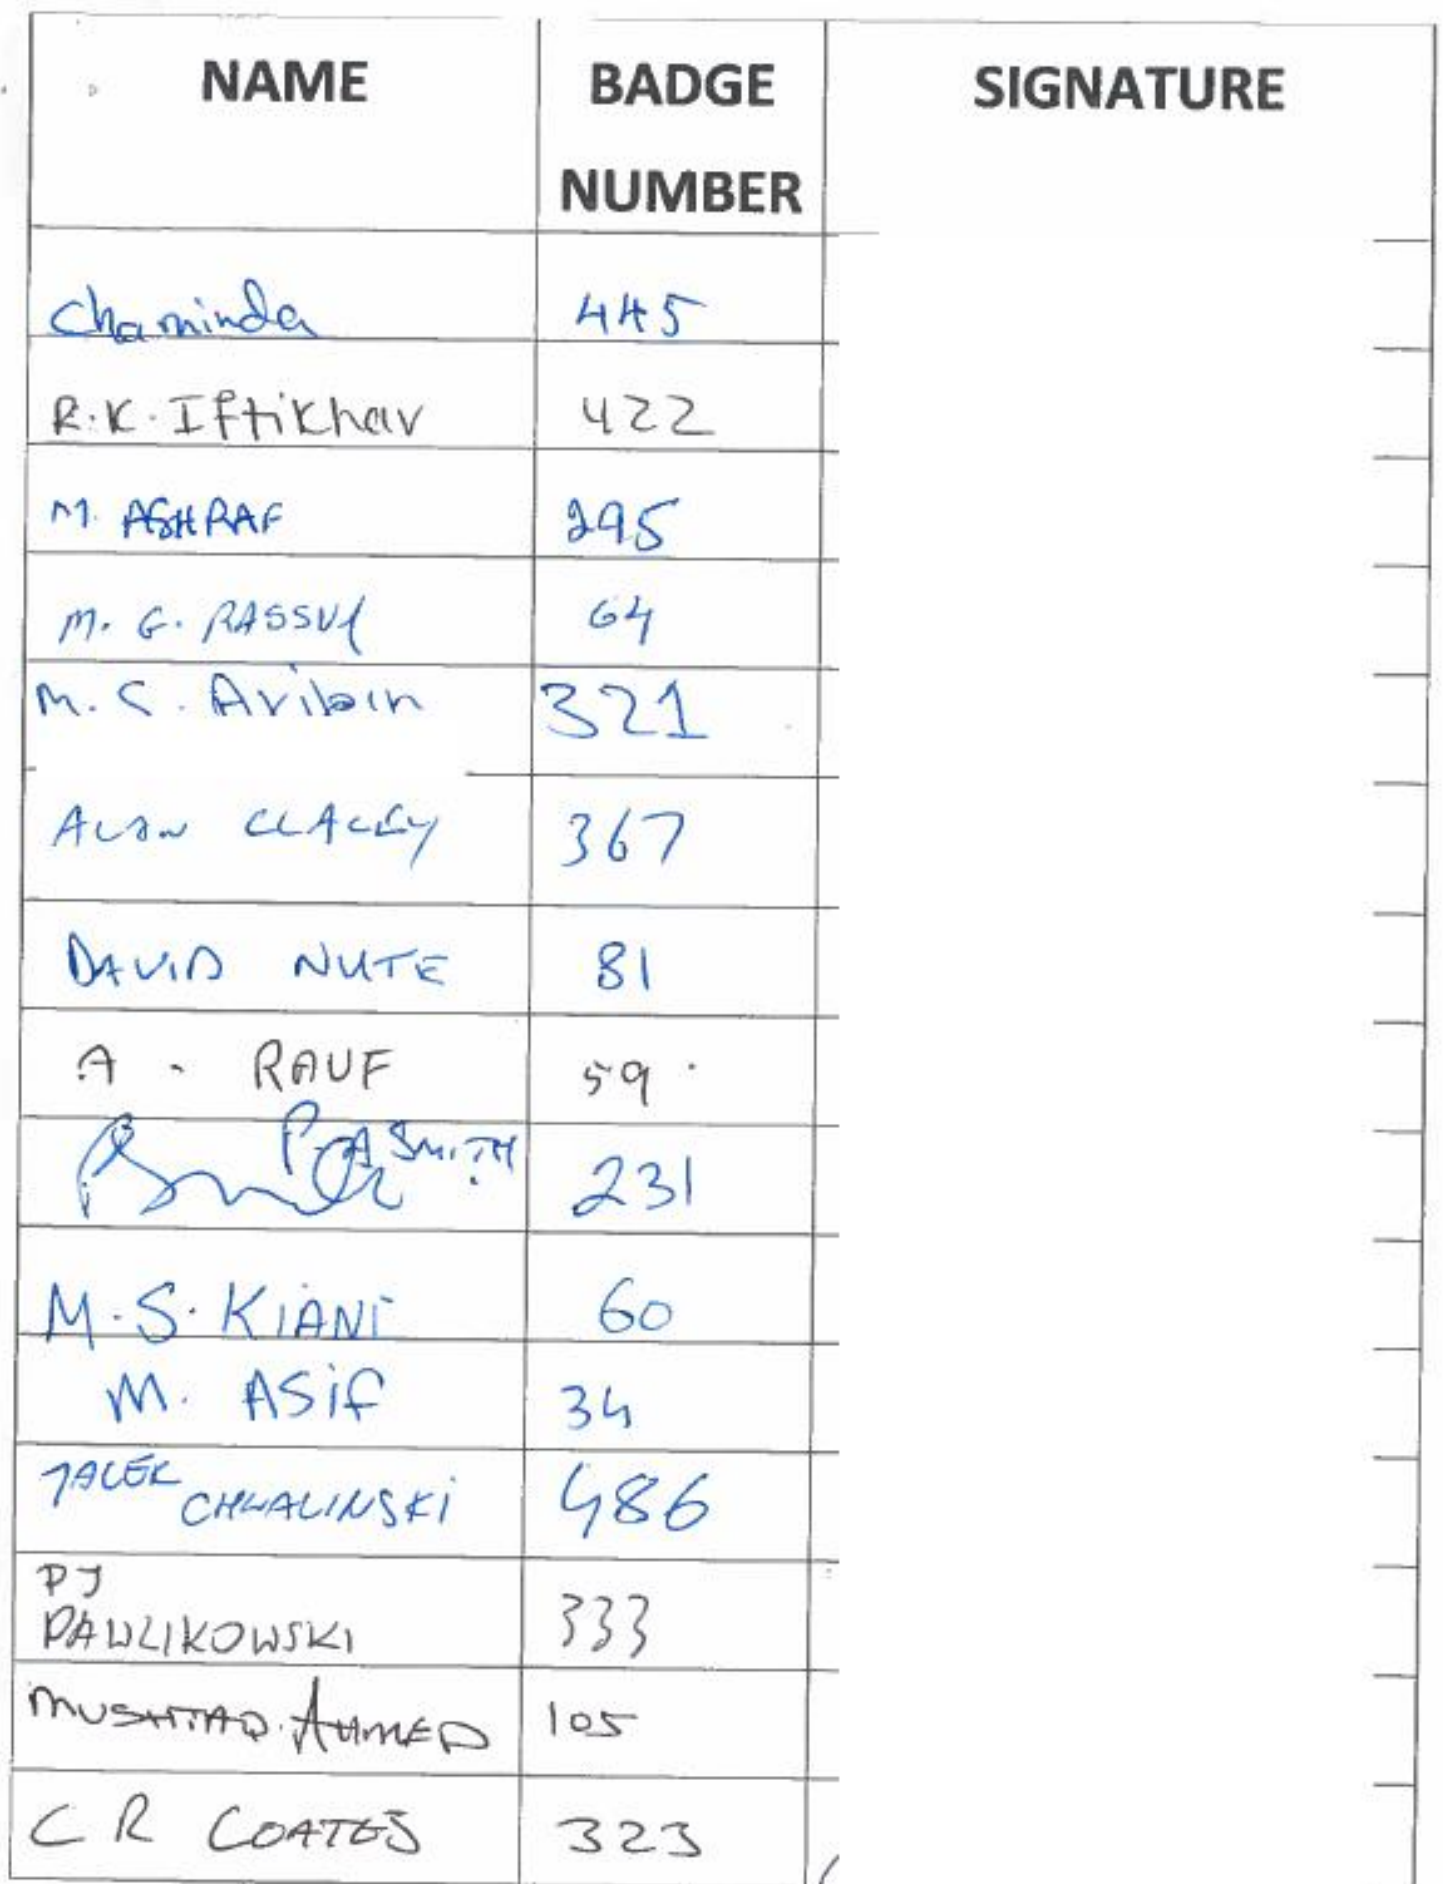 NAME BADGE SIGNATURE
NUMBER
Chaminda 445
R.K. Iftikhar 422
M. ASHRAF 295
M. G. RASSUl 64
M. S. Aribin 321
ALAN CLACEY 367
DAVID NUTE 81
A. RAUF 59.
P. A SMITH 231
M.S. KIANI 60
M. ASif 34
JACEK
CHWALINSKi 486
PJ
PAWLIKOWSKI 333
MUSHTAQ. AHMED 105
C R COATES 323